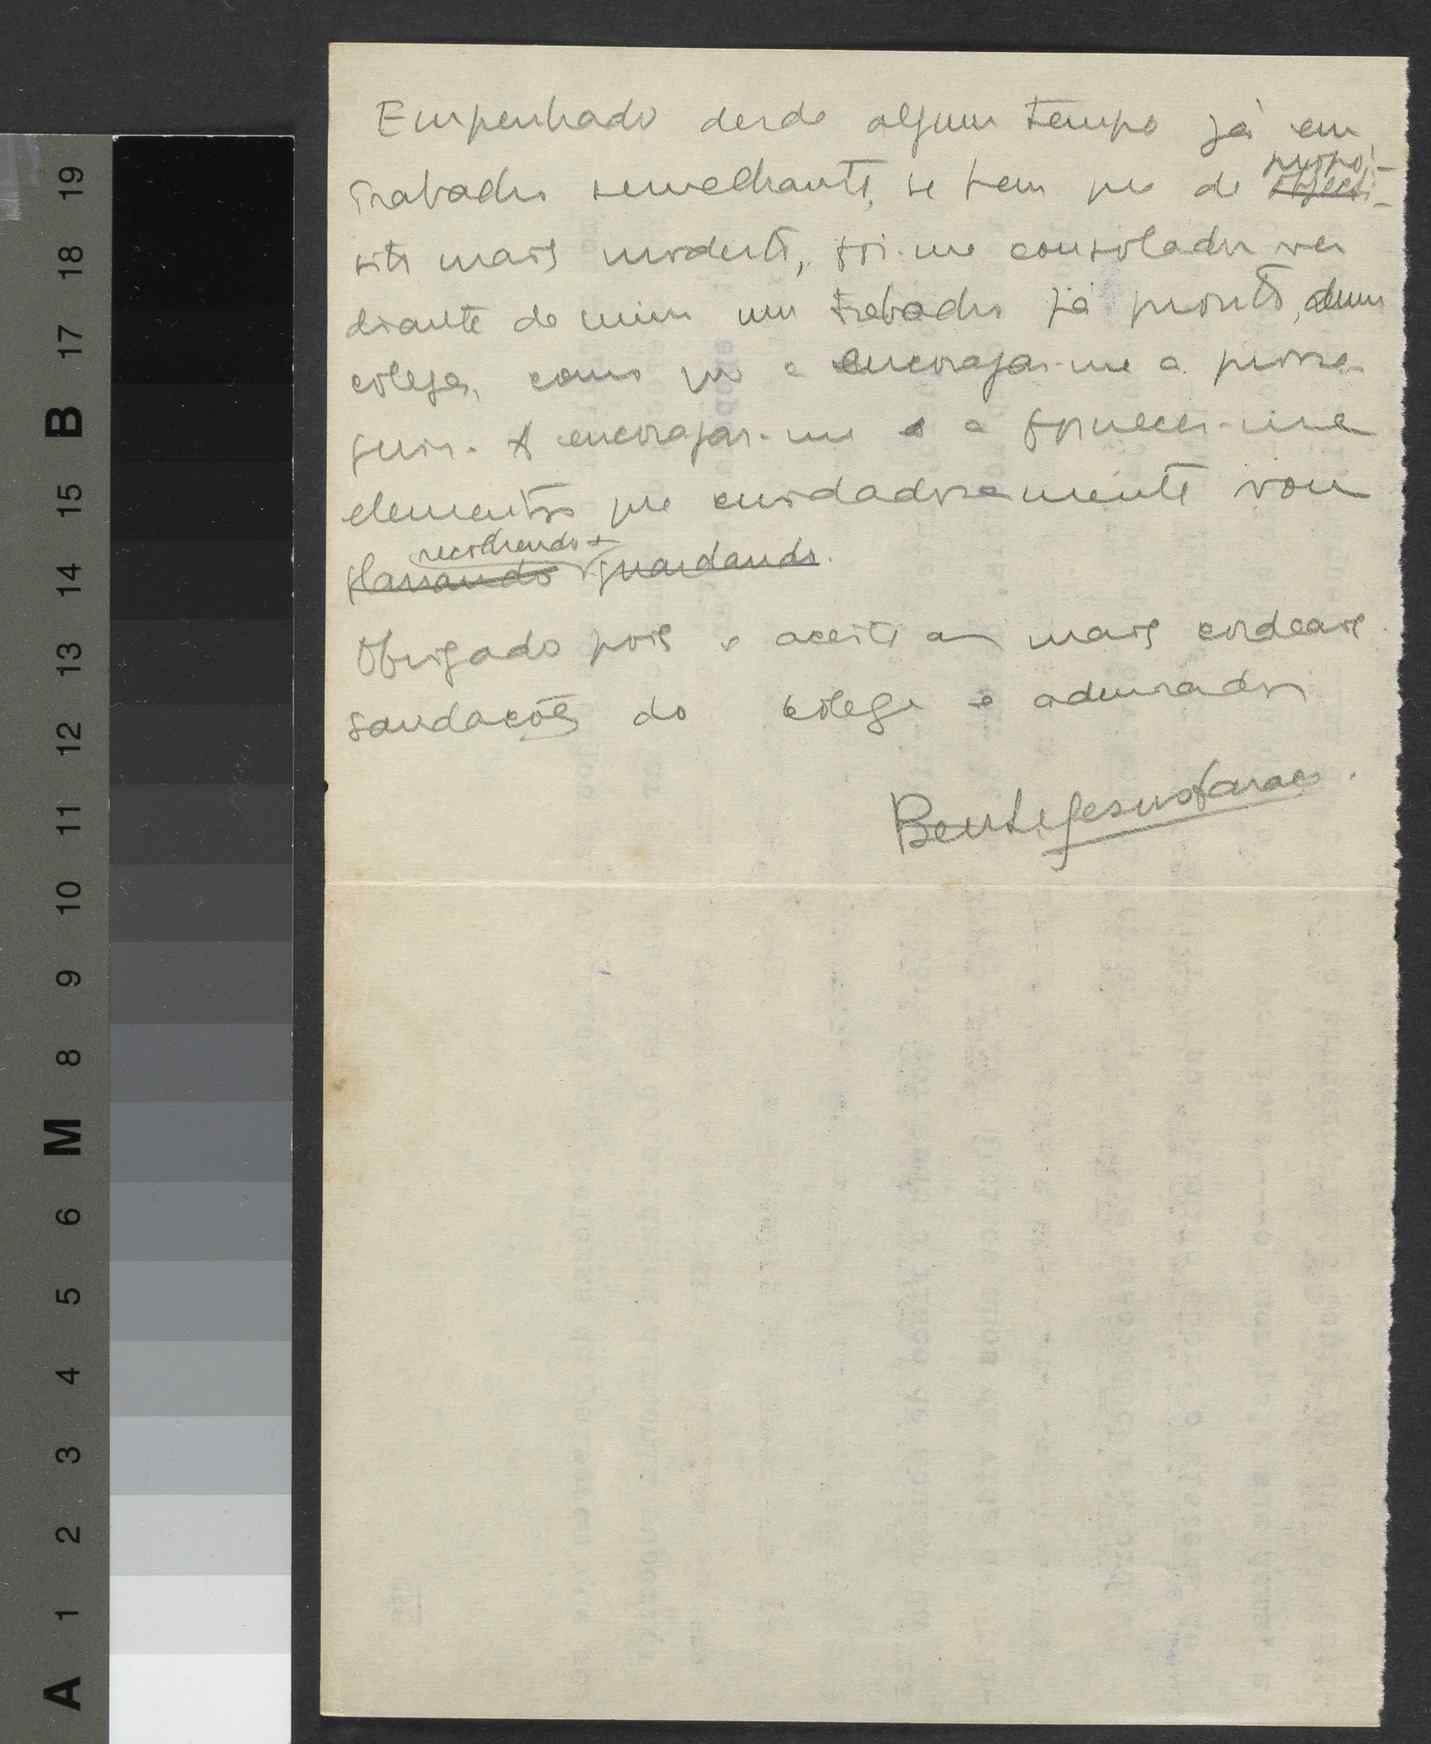 Empenhado desde algum tempo já em
trabalho semelhante, se bem que de propó-
sito mais modesto, foi-me consolador ver
diante de mim um trabalho já pronto, dum
colega, como que a encorajar-me a prosse-
guir. A encorajar-me e a fornecer-me
elementos que cuidadosamente vou
recolhendo e guardando.
Obrigado pois e aceite as mais cordeais
saudações do colega e admirador
Bento Jesus Caraça.
19
18
17
B
15
14
13
12
11
10
9
8
M
6
5
4
3
2
1
A